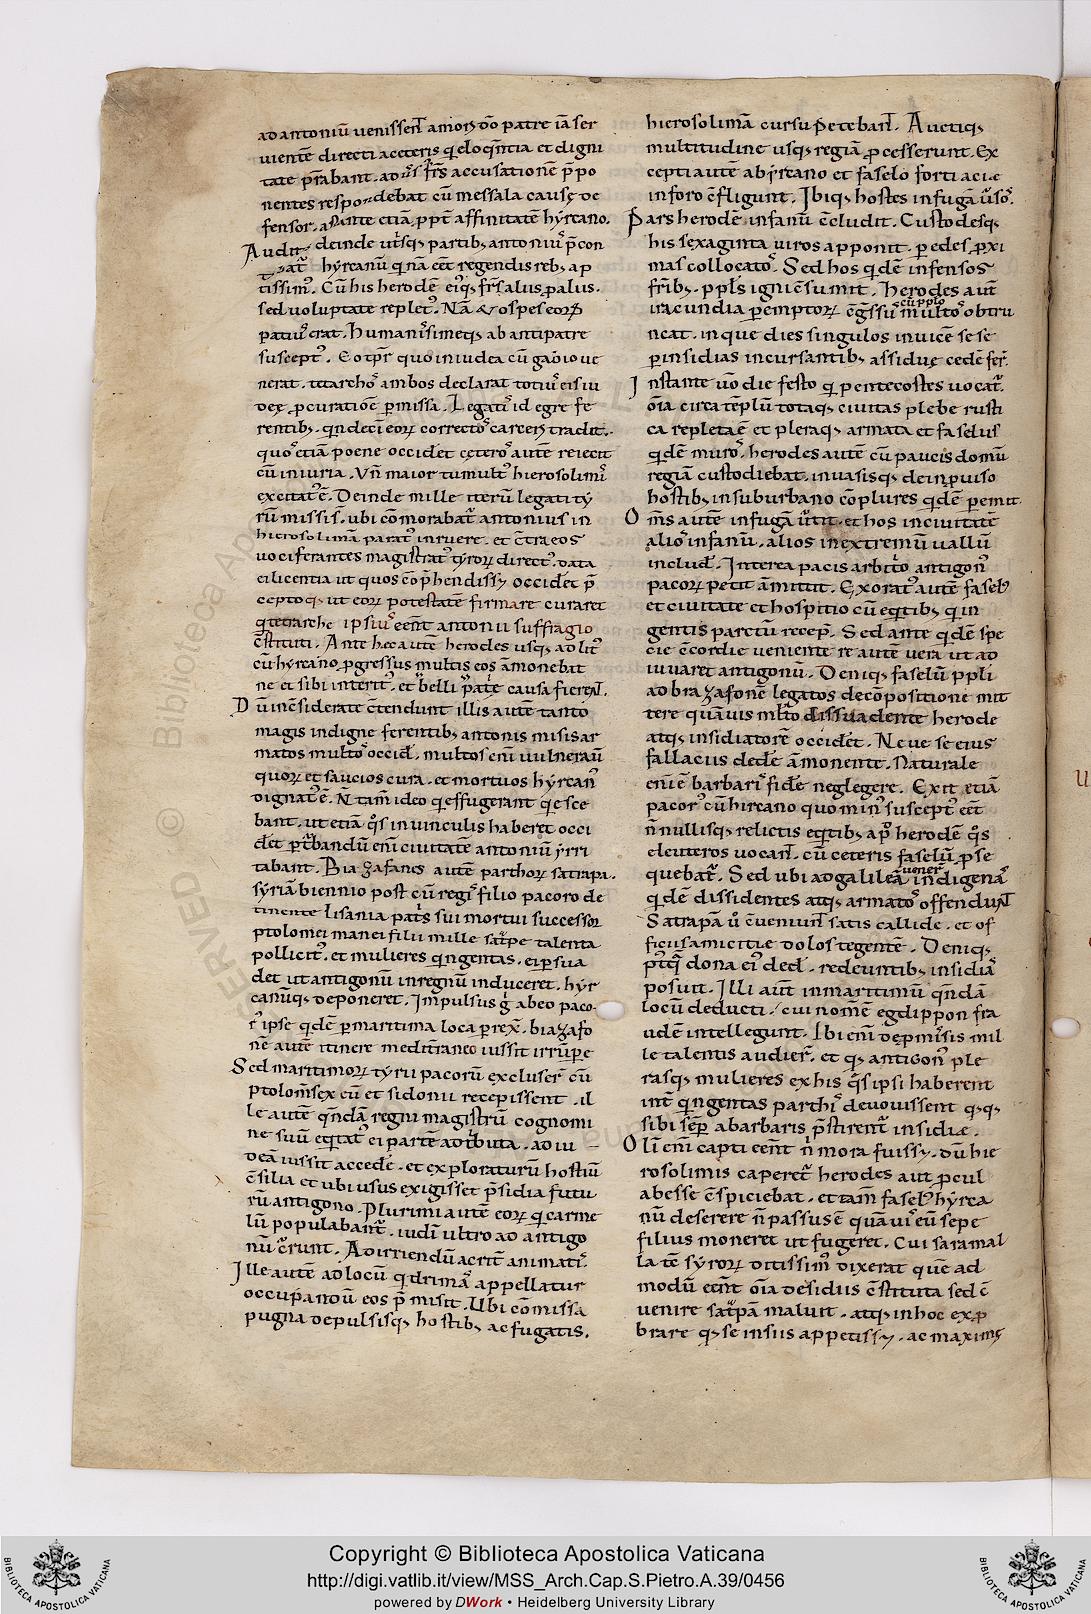 ad antoniū uenissent̄ amoris dō patre iā ser
uientē directi a ceteris q̄ eloq̄ntia et digni
tate p̄stabant. aduˢ fr̄s accusationē p̄po
nentes respondebat cū messala cause de
fensor. astante etiā ꝓpt̄ affinitatē hẏrcano.
Audit deinde utˢq; partib; antoniuˢ p̄con
hẏrcanū q̄nā eēt regendis reb; ap
tissimˢ. Cū his herodē eiq; fr̄s alus ꝓalus.
sed uoluptate repletˢ. Nā & ospes eorꝝ
patiuˢ erat. humanissimeq; ab antipatre
susceptˢ. Eo tp̄r quo in iudea cū gabio ue
nerat. tetrarchoˢ ambos declarat totiuˢ eis iu
deę ꝓcurationē ꝑmissa. Legatiˢ id egre fe
rentib;. q̄ndeci eorꝝ correctoˢ carceri tradit.
quoˢ etiā poene occidet cęteroˢ autē reiecit
cū iniuria. Vn̄ maior tumultˢ hierosolimiˢ
excitatˢ ē. Deinde mille iterū legati tẏ
rū missiˢ. ubi cōmorabat̄ antonius in
hierosolimā paratˢ inruere. et c̄tra eos
uociferantes magistratˢ tẏrorꝝ directˢ. data
ei licentia ut quos cōp̄hendiss; occidet p̄
ceptoq; ut eorꝝ potestatē firmare curaret
q̄ tetrarche ipsiuˢ eēnt antonii suffragio
c̄stituti. Ante hec autē herodes usq; ad litˢ
cū hẏrcano ꝓgressus multis eos āmonebat
ne et sibi interitˢ. et belli patˢe causa fierent̄.
Dū inc̄siderate c̄tendunt illis autē tanto
magis indigne ferentib; antonis misis ar
matos multoˢ occid̄. multos enī uulnerauī
quorꝝ et saucios cura. et mortuos hẏrcanˢ
dignatˢ ē. N̄ tam̄ ideo q̄ effugerant q̄esce
bant. ut etiā q̄s in uinculis haberet occi
dēt ꝑturbandū enī ciuitatē antoniū ẏrri
tabant. Biazafanes autē parthorꝝ satrapa.
sẏriā biennio post cū regiˢ filio pacoro de
tinente lisania patˢs sui mortui successor
ptolomei manei filii mille satˢpe talenta
pollicitˢ. et mulieres q̄ngentas. ei ꝑsua
det ut antigonū in regnū induceret. hẏr
canūq; deponeret. Impulsus g̊ abeo paco
rˢ ipse q̄dē ꝑ maritima loca ꝑrex̄. biazafa
nē autē itinere medit̄raneo iussit irrūpe
Sed maritimorꝝ tẏrii pacorū excluser̄ cū
ptolom̄sex eū et sidonii recepissent. il
le autē q̄ndā regni magistrū cognomi
ne suū eq̄tatˢ ei partē adtˢibuta. ad iu
deā iussit accedē. et exploraturū hostiū
c̄silia et ubi usus exigisset p̄sidia futu
rū antigono. Plurimi autē eorꝝ q̄ carme
lū populabant̄. iudīi ultro ad antigo
nū c̄rrunt. Ad irriendū acrit̄ animatiˢ.
Ille autē ad locū q̄ drimāˢ appellatur
occupandū eos p̄misit. Ubi cōmissa
pugna depulsisq; hostib; ac fugatis.
hierosolimā cursu ꝑetebant̄. Auctiq;
multitudine usq; regiā ꝓcesserunt. Ex
cepti autē ab hẏrcano et faselo forti acie
in foro c̄fligunt. Ibiq; hostes in fugā uˢsoˢ.
Pars herodē in fanū c̄cludit. Custodesq;
his sexaginta uiros apponit. ꝑ edes ꝓxi
mas collocatoˢ. Sed hos q̄dē infensos
frib;. ppl̄s igni c̄sumit. Herodes aut̄
iracundia ꝑemptorꝝ c̄gssuˢ cū pplo multoˢ obtru
ncat. inque dies singulos inuicē sese
ꝑ insidias incursantib; assidue cedē fer̄.
Instante uō die festo q̄ pentecostes uocat̄.
oīa circa tēplū totaq; ciuitas plebe rusti
ca repleta ē et pleraq; armata et faselus
q̄dē muroˢ. herodes autē cū paucis domū
regiā custodiebat. inuasisq; deinp̄uiso
hostib; in suburbano cōplures q̄dē ꝑemit.
Om̄s autē in fugā uˢtit. et hos in ciuitatē
alioˢ in fanū. alios in extremū uallū
includ̄. Interea pacis arbitˢo antigonˢ
pacorꝝ petit āmittit. Exoratˢ autē faselˢ
et ciuitate et hospitio cū eq̄tib; q̄ in
gentis parctū recep̄. Sed ante q̄dē spe
cie c̄cordie ueniente re autē uera ut ad
iuuaret antigonū. Deniq; faselū ꝓpli
ad brazafonē legatos de cōpositione mit
tere quāuis ml̄to dissuadente herode
atq; insidiatorē occidēt. Neue se eius
fallaciis dedē āmonente. Naturale
enī ē barbariˢ fidē neglegere. Exit etiā
pacorˢ cū hircano quo minˢ susceptˢ eēt
n̄nullisq; relictis eq̄tib; apˢ herodē q̄s
eleuteros uocant̄. cū ceteris faselū ꝓse
quebat̄. Sed ubi ad galileā uener̄ indigenāˢ
q̄dē dissidentes atq; armatoˢ offendunt̄
Satrapā uˢ c̄ueniunt̄ satis callide. et of
ficiis amicitie dolos tegentē. Deniq;
p̄tq̄ dona eiˢ ded̄. redeuntib; insidiāˢ
posuit. Illi aut̄ in maritimū q̄ndā
locū deducti. cui nom̄ē egdippon fra
udē intellegunt. Ibi enī de ꝓmissis mil
le talentis audier̄. et q; antigonˢ ple
rasq; mulieres ex his q̄s ipsi haberent
int̄ q̄ngentas parthiˢ deuouissent q;q;
sibi sēꝑ a barbaris p̄stirent̄ insidiæ.
Olī enī capti eēnt n̄ mora fuiss;. dū hie
rosolimis caperet̄ herodes aut̄ ꝓcul
abesse c̄spiciebat. et tam̄ faselˢ hẏrca
nū deserere n̄ passus ē quā uiˢ eū sepe
filius moneret ut fugeret. Cui saramal
la tē sẏrorꝝ ditissimˢ dixerat que ad
modū eēnt oīa desidiis c̄stituta sed c̄
uenire satˢpā maluit. atq; in hoc exꝓ
brare q; se insiis appetiss;. ac maxime
Copyright © Biblioteca Apostolica Vaticana
http://digi.vatlib.it/view/MSS_Arch.Cap.S.Pietro.A.39/0456
powered by DWork • Heidelberg University Library